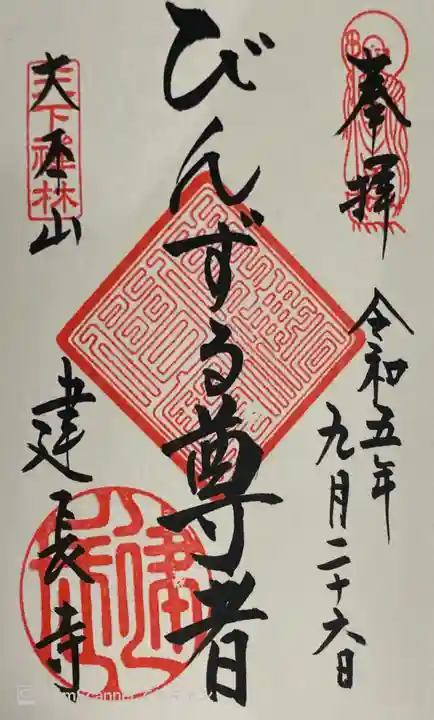 奉拝
令和五年
九月二十六日
びんずる尊者
天下禅林
大本山
建長寺